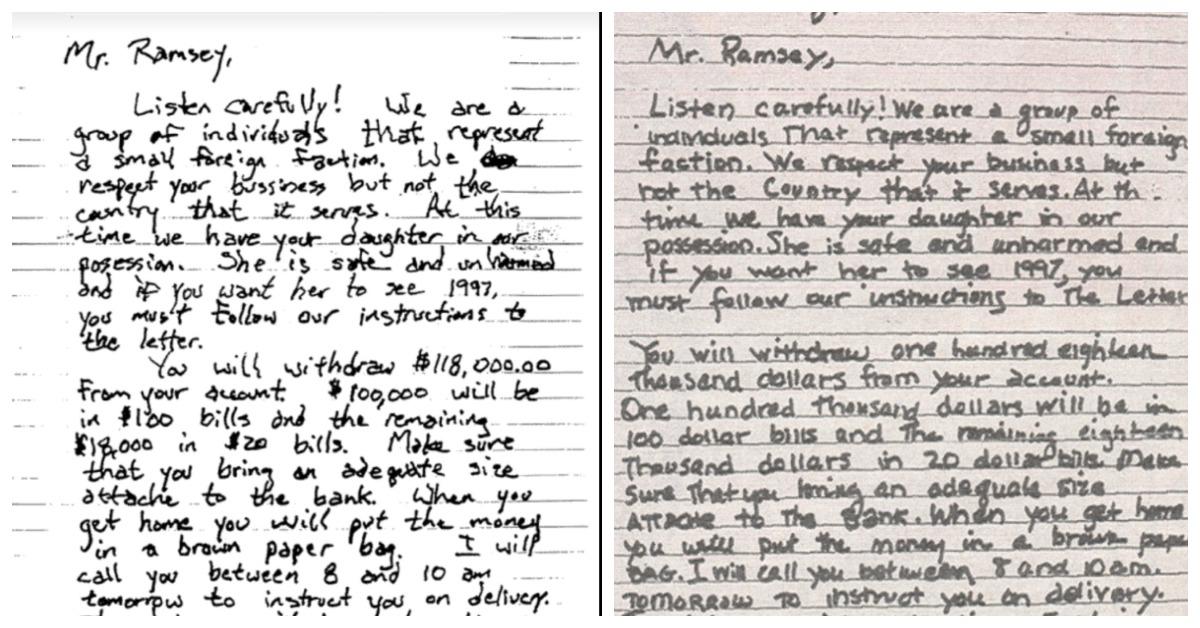 Mr. Ramsey,
Listen carefully! We are a
group of individuals that represent
a small foreign faction. We
respect your bussiness but not the
country that it serves. At this
time we have your daughter in our
posession. She is safe and unharmed
and if you want her to see 1997,
you must follow our instructions to
the letter.
You will withdraw $118,000.00
from your account. $100,000 will be
in $100 bills and the remaining
$18,000 in $20 bills. Make sure
that you bring an adequate size
attache to the bank. When you
get home you will put the money
in a brown paper bag. I will
call you between 8 and 10 am
tomorrow to instruct you on delivery.
Mr. Ramsey,
Listen carefully! We are a group of
individuals That represent a small foreign
faction. We respect your business but
not the Country that it serves. At th
time we have your daughter in our
possession. She is safe and unharmed and
if you want her to see 1997, you
must follow our instructions to The Letter
You will withdraw one hundred eighteen
Thousand dollars from your account.
One hundred Thousand dollars will be in
100 dollar bills and The remaining eighteen
Thousand dollars in 20 dollar bills. Make
Sure That you bring an adequate size
ATTACHE to The Bank. When you get home
you will put the money in a brown pape
BAG. I will call you between 8 and 10 am.
TOMORROW TO instruct you on delivery.